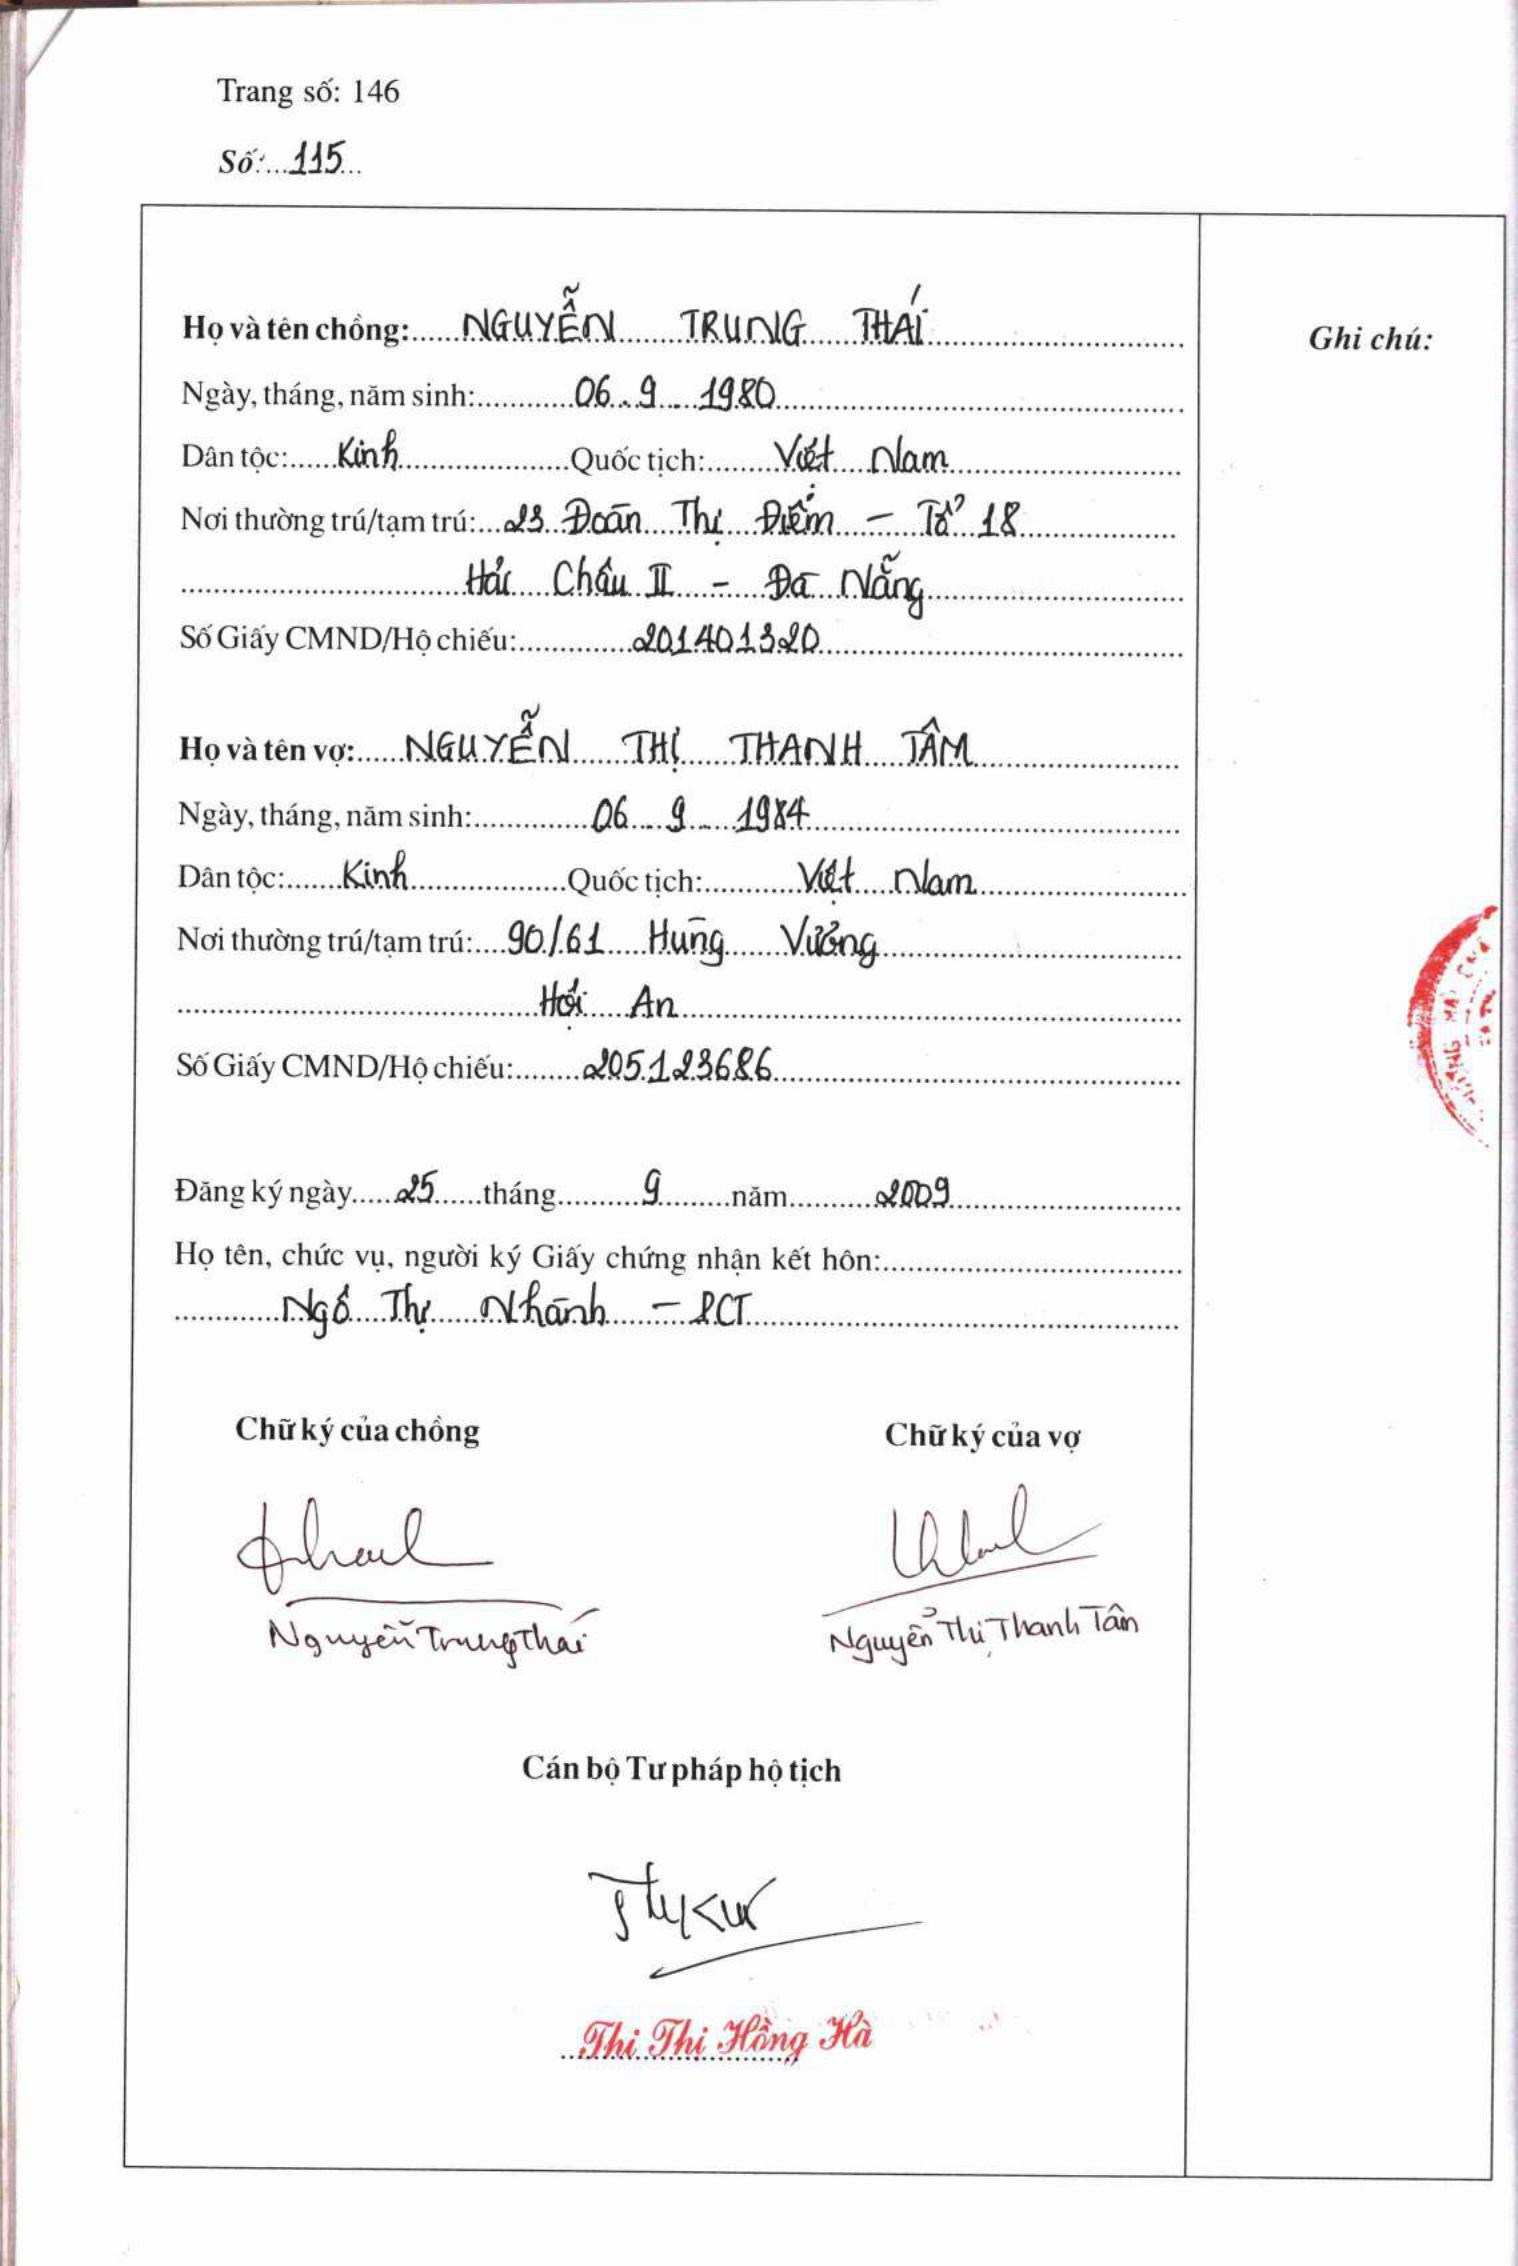 Trang số: 146
Số: 115
Họ và tên chồng: NGUYỄN TRUNG THÁI
Ghi chú:
Ngày, tháng, năm sinh: 06.9.1980
Dân tộc: Kinh Quốc tịch: Việt Nam
Nơi thường trú/tạm trú: 23 Đoàn Thị Điểm - Tổ 18
Hải Châu II - Đà Nẵng
Số Giấy CMND/Hộ chiếu: 201401320
Họ và tên vợ: NGUYỄN THỊ THANH TÂM
Ngày, tháng, năm sinh: 06.9.1984
Dân tộc: Kinh Quốc tịch: Việt Nam
Nơi thường trú/tạm trú: 90/61 Hùng Vương
Hội An
Số Giấy CMND/Hộ chiếu: 205123686
Đăng ký ngày 25 tháng 9 năm 2009
Họ tên, chức vụ, người ký Giấy chứng nhận kết hôn:
Ngô Thị Nhành - PCT
Chữ ký của chồng Chữ ký của vợ
Nguyễn Trung Thái Nguyễn Thị Thanh Tâm
Cán bộ Tư pháp hộ tịch
Thi Thi Hồng Hà